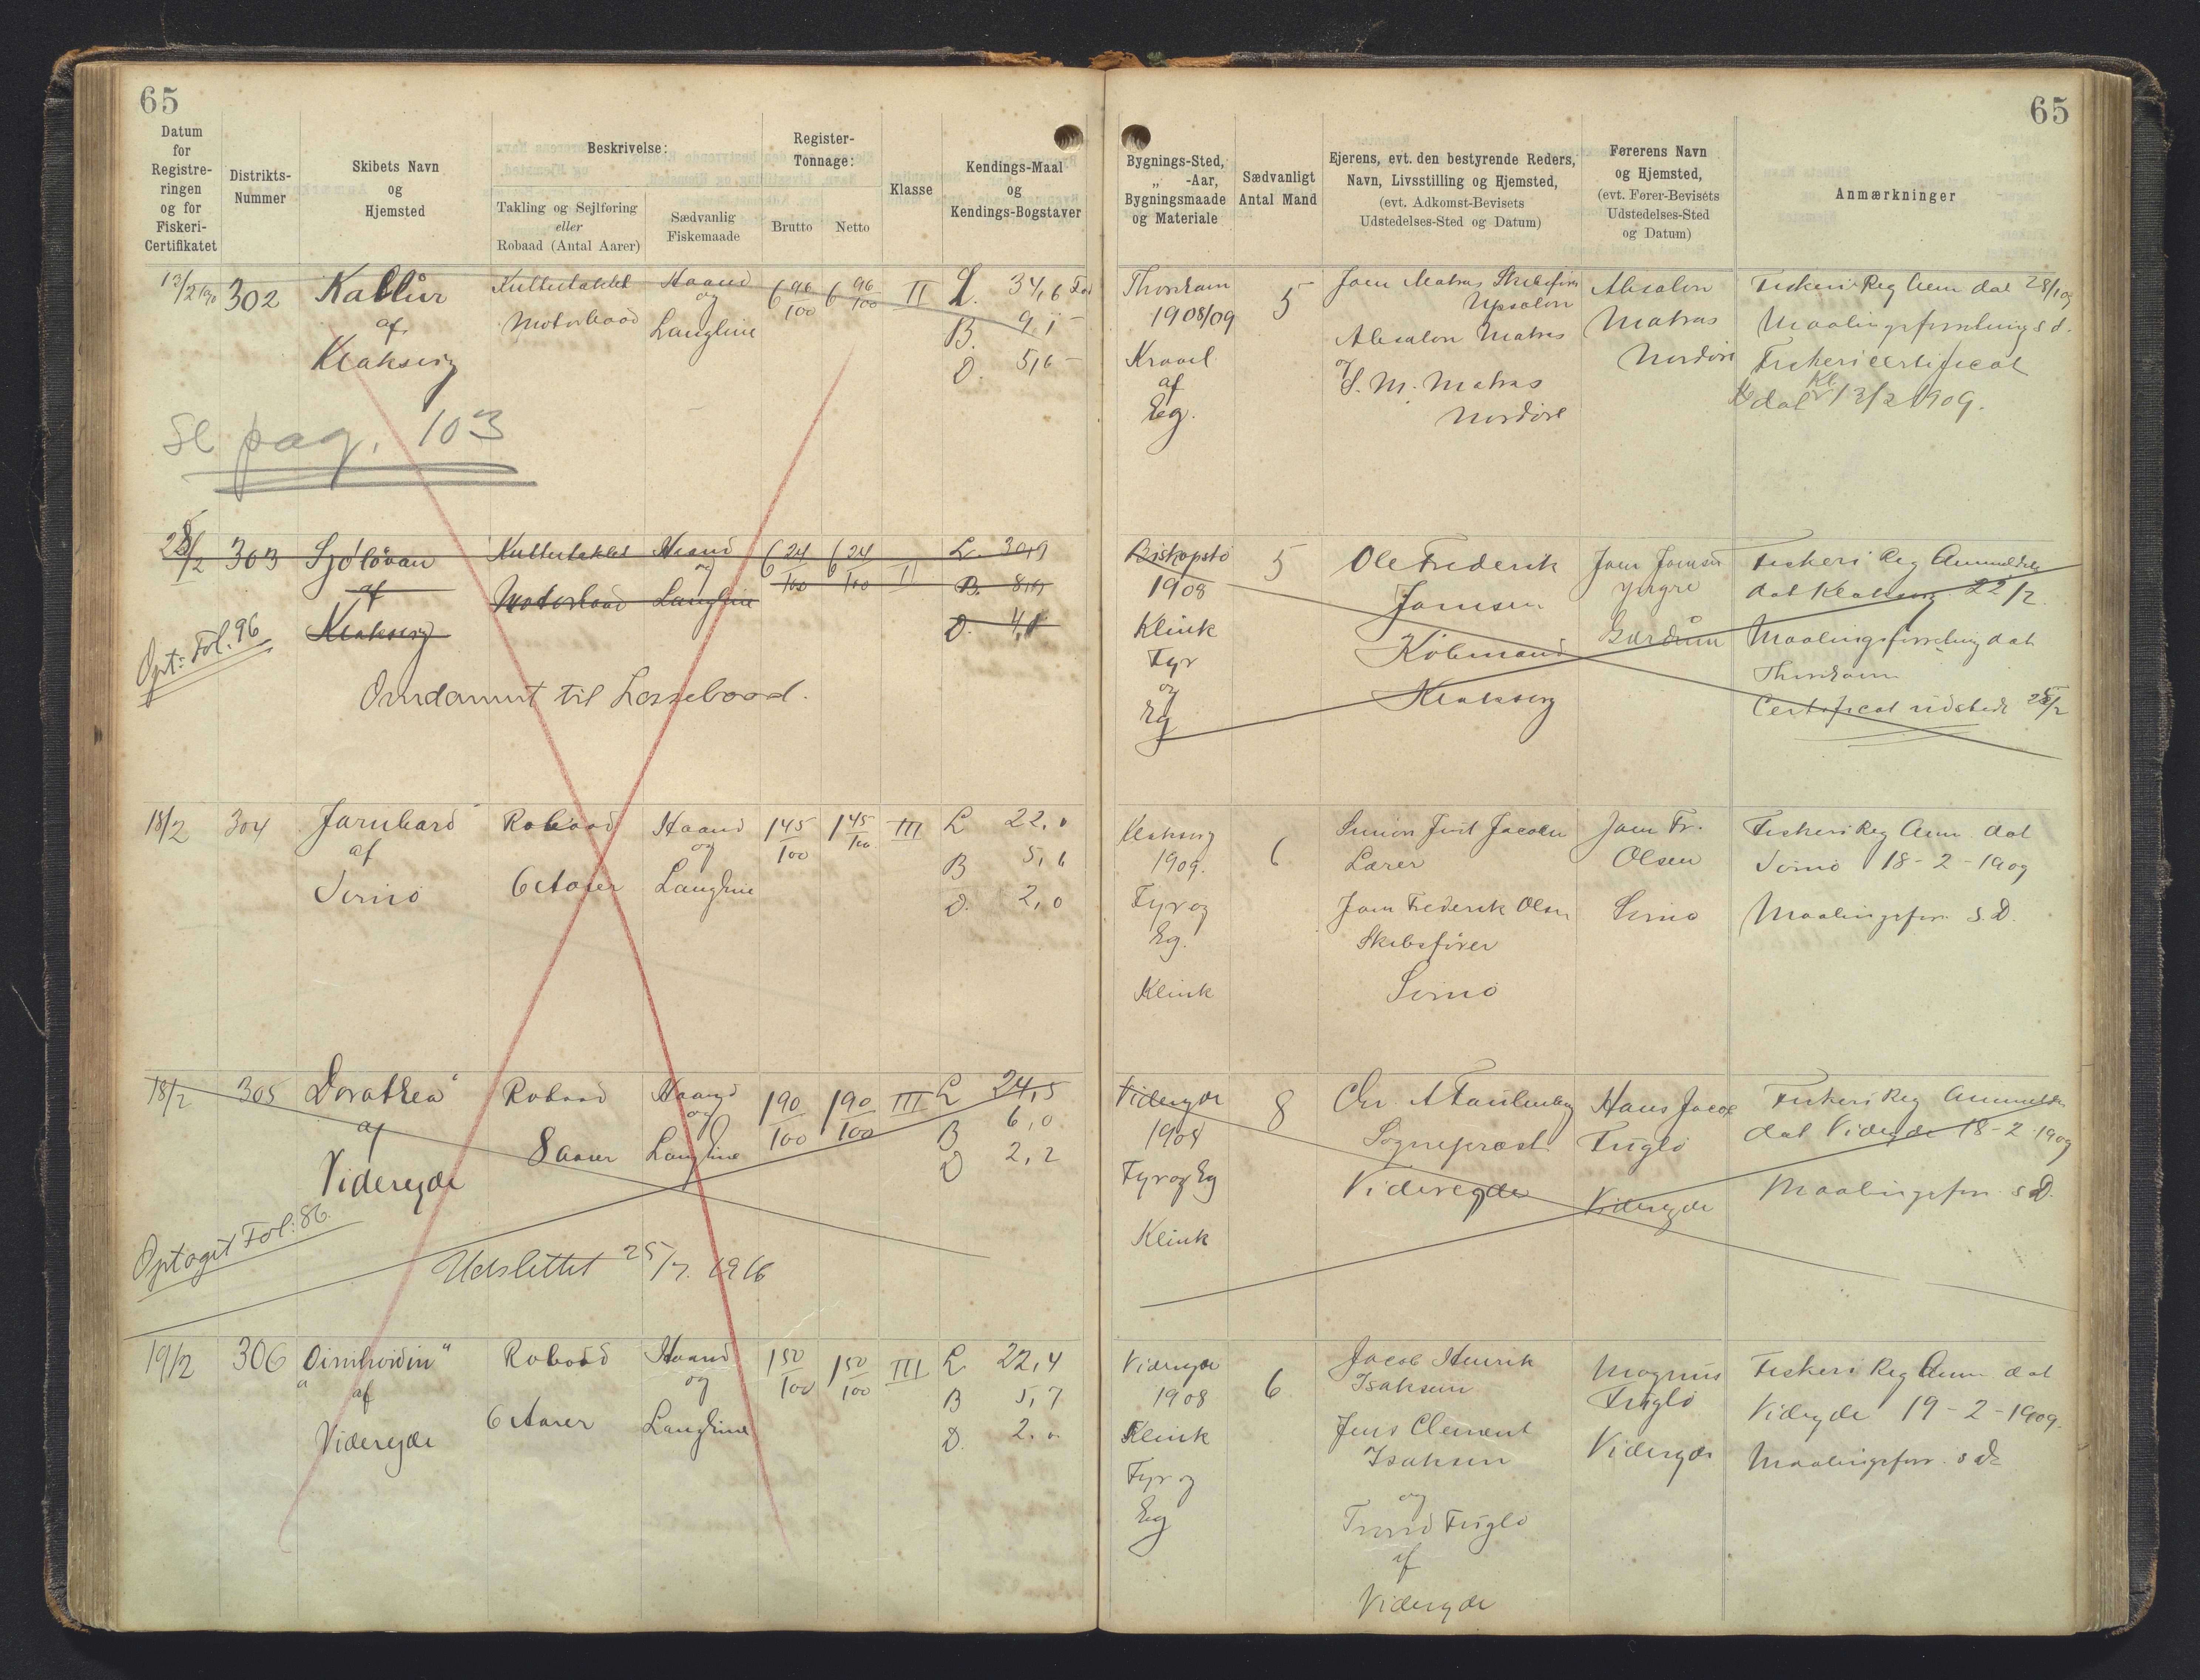 65
Datum
for
Registre-
ringen
og for
Fiskeri-
Certifikatet
Distrikts-
Nummer
Skibets Navn
og
Hjemsted
Beskrivelse:
Takling og Sejlføring
eller
Robaad (Antal Aarer)
Sædvanlig
Fiskemaade
Register-
Tonnage:
Brutto
Netto
Klasse
Kendings-Maal
og
Kendings-Bogstaver
65
Bygnings-Sted,
„ -Aar,
Bygningsmaade
og Materiale
Sædvanligt
Antal Mand
Ejerens, evt. den bestyrende Reders,
Navn, Livsstilling og Hjemsted,
(evt. Adkomst-Bevisets
Udstedelses-Sted og Datum)
Førerens Navn
og Hjemsted,
(evt. Fører-Beviséts
Udstedelses-Sted
og Datum)
Anmærkninger
302
Kallur
af
Klaksvig
Kuttertaklet
Motorbaad
Haand
og
Langline
6 96/100
6 96/100
II
L. 34,6
B. 9,1
D. 5,6
Se pag. 103
Thorshavn
1908/09
Kravel
af
Eg.
5
Absalon Matras
og
S. M. Matras
Nordöre
Absalon
Matras
Nordöre
Fiskeri Reg Anm dat 28/1 09
Maalingsforretning s d.
Fiskericertificat
dat 13/2 1909.
28/2
303
Sjólovan
af
Klaksvig
Kuttertaklet
Motorbaad
Haand
og
Langline
6 24/100
6 24/100
II
L. 30,9
B. 8,9
D. 4,8
Opt: Fol. 96
Omdannet til Lossebaad.
Biskopstö
1908
Klink
Fyr
og
Eg
5
Ole Frederik
Joensen
Kóbmand
Klaksvig
Joen Joensen
yngre
Fiskeri Reg Anmeldelse
dat Klaksvig 22/2.
Maalingsforretning dat
Thorshavn
Certificat udstedt 25/2
18/2
304
Jarnbard
af
Svinö
Robaad
6 Aarer
Haand
og
Langline
1 45/100
1 45/100
III
L 22,0
B 5,6
D. 2,0
Klaksvig
1909.
Fyr og
Eg.
Klink
6
Simon Just Jacobsen
Lærer
Joen Frederik Olsen
Skibsfører
Svinö
Joen Fr.
Olsen
Svinö
Fiskeri Reg Anm. dat
Svinö 18-2-1909
Maalingsforr. s. D.
18/2
305
Dorathea"
af
Videreyde
Robaad
8 aarer
Haand
og
Langline
1 90/100
1 90/100
III
L 24,5
B 6,0
D 2,2
Optaget Fol: 86.
Udslettet 25/7. 1916
Videreyde
1908
Fyr og Eg
Klink
8
Sognepræst
Videreyde
Hans Jacob
Fuglö
Videreyde
Fiskeri Reg Anmeldelse
dat Videreyde 18-2-1909
Maalingsforr. s D.
19/2
306
af
Videreyde
Robaad
6 Aarer
Haand
og
Langline
1 50/100
1 50/100
III
L 22,4
B 5,7
D. 2.0
Videreyde
1908
Klink
Fyr og
Eg
6
Jacob Henrik
Isaksen
Jens Clement
Isaksen
og
Trond Fuglö
af
Videreyde
Magnus
Fuglö
Videreyde
Fiskeri Reg Anm dat
Videreyde 19-2-1909.
Maalingsforr. s D